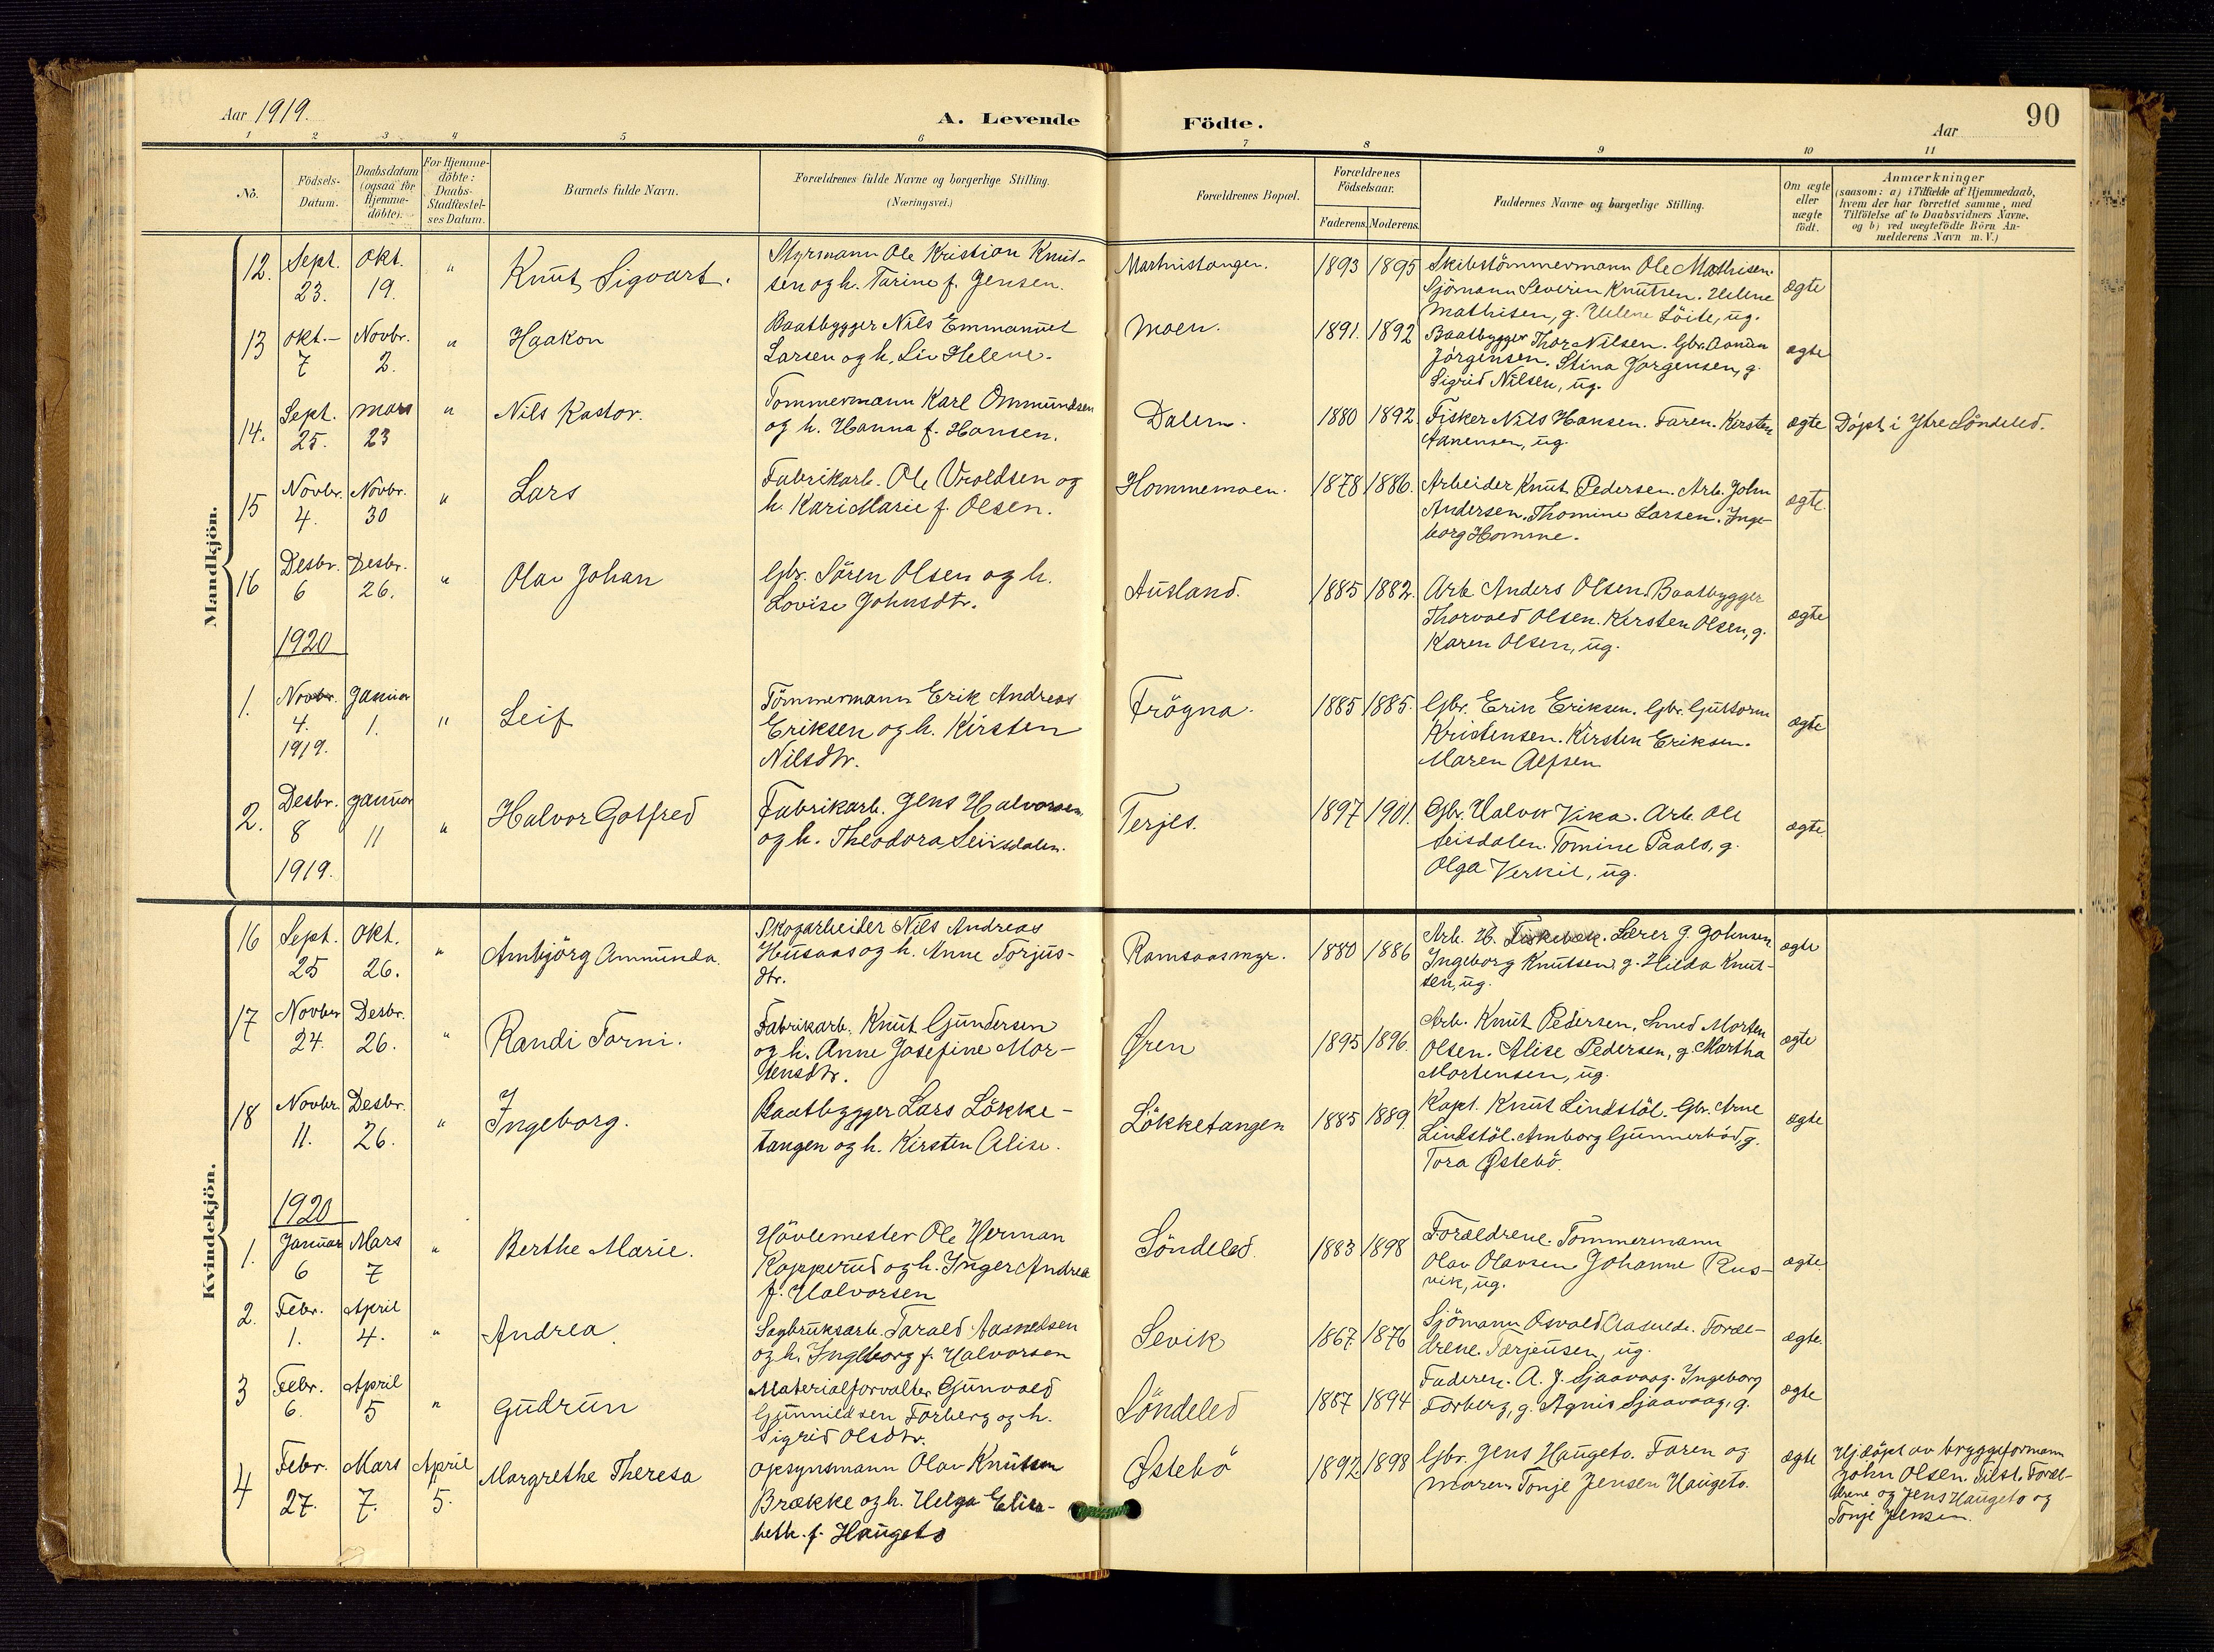 Aar 1919.
A. Levende Födte.
Aar
90
1 2 3 4 5 6 7 8 9 10 11
No.
Födsels-Datum.
Daabsdatum (ogsaa for Hjemme-döbte).
For Hjemme-döbte: Daabs-Stadfæstel-ses Datum.
Barnets fulde Navn.
Forældrenes fulde Navne og borgerlige Stilling. (Næringsvei.)
Forældrenes Bopæl.
Forældrenes Födselsaar.
Faderens. Moderens.
Faddernes Navne og borgerlige Stilling.
Om ægte eller uægte födt.
Anmærkninger
(saasom: a) i Tilfælde af Hjemmedaab,
hvem der har forrettet samme, med
Tilföielse af to Daabsvidners Navne.
og b) ved uægtefödte Börn An-
melderens Navn m.V.)
Mandkjön.
12. Sept. 23. Okt. 19. " Knut Sigvart.
Styrmann Ole Kristian Knut-
sen og h. Tarine f. Jensen.
1893 1895
Skibstömmermann Ole Mathisen.
Sjömann Severin Knutsen. Helene
Mathisen, g. Helene Löite, ug.
ægte
13 Okt. 7 Novbr. 2. " Haakon
Baatbygger Nils Emmanuel
Larsen og h. Liv Helene.
Moen.
1891. 1892
Baatbygger Thor Nilsen. Gbr.
Jörgensen. Stina Jörgensen, g.
Sigrid Nilsen, ug.
ægte
14. Sept. 25. Mars 23 " Nils Kastor.
Tömmermann Karl Ommundsen
og h. Hanna f. Hansen.
Dalen.
1880 1892.
Fisker Nils Hansen. Faren. Kirsten
Aanensen, ug.
ægte
Döpt i Ytre Söndeled.
15 Novbr. 4. Novbr. 30 " Lars
Fabrikarb. Ole Vroldsen og
h. Kari Marie f. Olsen.
Hommemoen.
1878 1886.
Arbeider Knut Pedersen. Arb. John
Andersen. Thomine Larsen. Inge-
borg Homme.
ægte.
16 Desbr. 6 Desbr. 26. " Olav Johan
Gbr. Sören Olsen og h.
Lovise Johnsdtr.
Ausland.
1885 1882.
Arb. Anders Olsen. Baatbygger
Thorvald Olsen. Kirsten Olsen, g.
Karen Olsen, ug.
ægte
1920
1. Novbr. 4. 1919. Januar 1. " Leif
Tömmermann Erik Andreas
Eriksen og h. Kirsten
Nilsdtr.
Frögna.
1885 1885.
Gbr. Erik Eriksen. Gbr. Guttorm
Kristensen. Kirsten Eriksen.
Maren Alfsen
ægte
2. Desbr. 8 1919. Januar 11 " Halvor Gotfred
Fabrikarb. Jens Halvorsen
og h. Theodora Seivsdalen.
Terjes.
1897 1901.
Gbr. Halvor Vika. Arb. Ole
Tomine Paals, g.
Olga Verkil, ug.
ægte.
Kvindekjön.
16 Sept. 25 Okt. 26. " Ambjörg Ammunda.
Skogarbeider Nils Andreas
Husaas og h. Anne Torjus-
dtr.
Ramsaasmyr.
1880 1886
Arb. H. Fiskebæk. Lærer J. Johnsen.
Ingeborg Knutsen, g. Hilda Knut-
sen, ug.
ægte
17 Novbr 24. Desbr. 26. " Randi Torni.
Fabrikarb. Knut Gundersen
og h. Anne Josefine Mor-
tensdtr.
Øren
1895 1896.
Arb. Knut Pedersen, Smed Morten
Olsen. Alise Pedersen, g. Martha
Mortensen, ug.
ægte
18 Novbr. 11. Desbr. 26. " Ingeborg.
Baatbygger Lars Lökke-
tangen og h. Kirsten Alise.
Lökketangen
1885 1889.
Kapt. Knut Lindstöl. Gbr. Arne
Lindstöl. Amborg Gunnerböd, g.
Tora Østebö.
ægte
1920
1. Januar 6 Mars 7 " Berthe Marie.
Hövlemester Ole Herman
Kopperud og h. Inger Andrea
f. Halvorsen
Söndeled.
1883 1898
Forældrene. Tömmermann
Olav Olavsen Johanne Rus-
vik, ug.
ægte.
2. Febr. 1. April 4. " Andrea.
Sagbruksarb. Tarald Aasmelsen
og h. Ingeborg f. Halvorsen
Sevik
1867. 1876
Sjömann Osvald Foræl-
drene. Tarjeusen, ug.
ægte.
3 Febr. 6. April 5 " Gudrun
Materialforvalter Gunvald
Gunnildsen Forberg og h.
Sigrid Olsdtr.
Söndeled
1887 1894
Faderen. A. J. Sjaavaag. Ingeborg
Forberg, g. Agnis Sjaavaag, g.
ægte
4 Febr. 27. Mars 7. April 5. Margrethe Theresa
Opsynsmann Olav Knutsen
Brække og h. Helga Elisa-
beth. f. Haugeto
Østebö
1892 1898
Gbr. Jens Haugeto. Faren og
moren. Tonje Jensen Haugeto.
ægte
Hjdöpt av bryggeformann
John Olsen. Tilst. Foræl-
drene og Jens Haugeto og
Tonje Jensen.